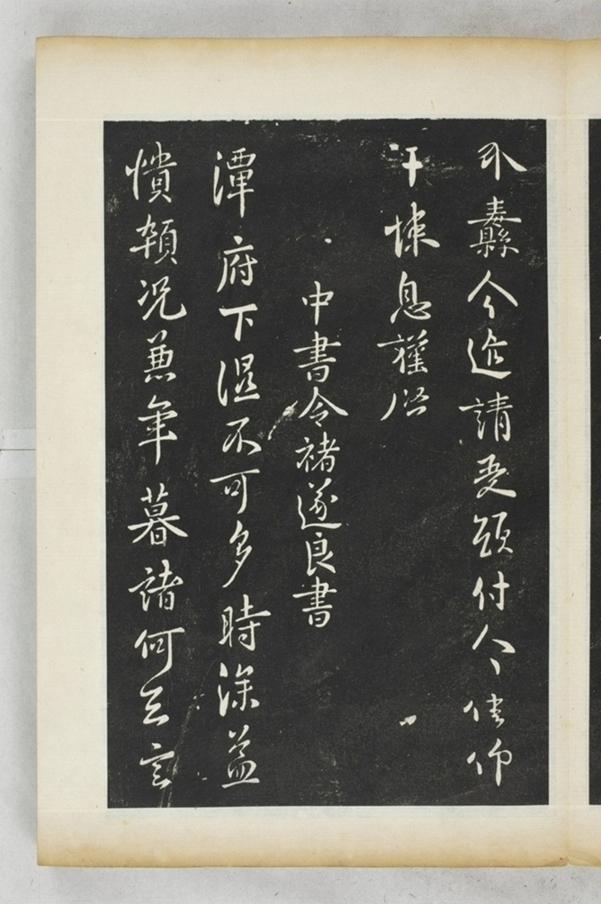 纛今請受領付仰
汗悚息謹啓
中書令褚遂良書
潭府下濕不可多時深益
憒頓況兼年暮諸何足言